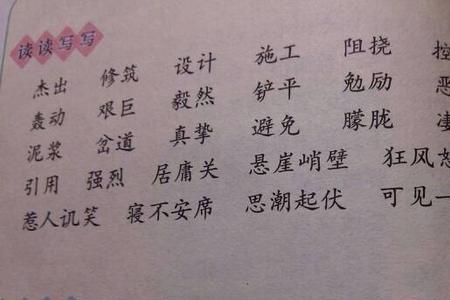 读读写写
杰出 修筑 设计 施工 阻挠 控
轰动 艰巨 毅然 铲平 勉励 恶
泥浆 岔道 真挚 避免 朦胧 凄
引用 强烈 居庸关 悬崖峭壁 狂风怒
惹人讥笑 寝不安席 思潮起伏 可见一